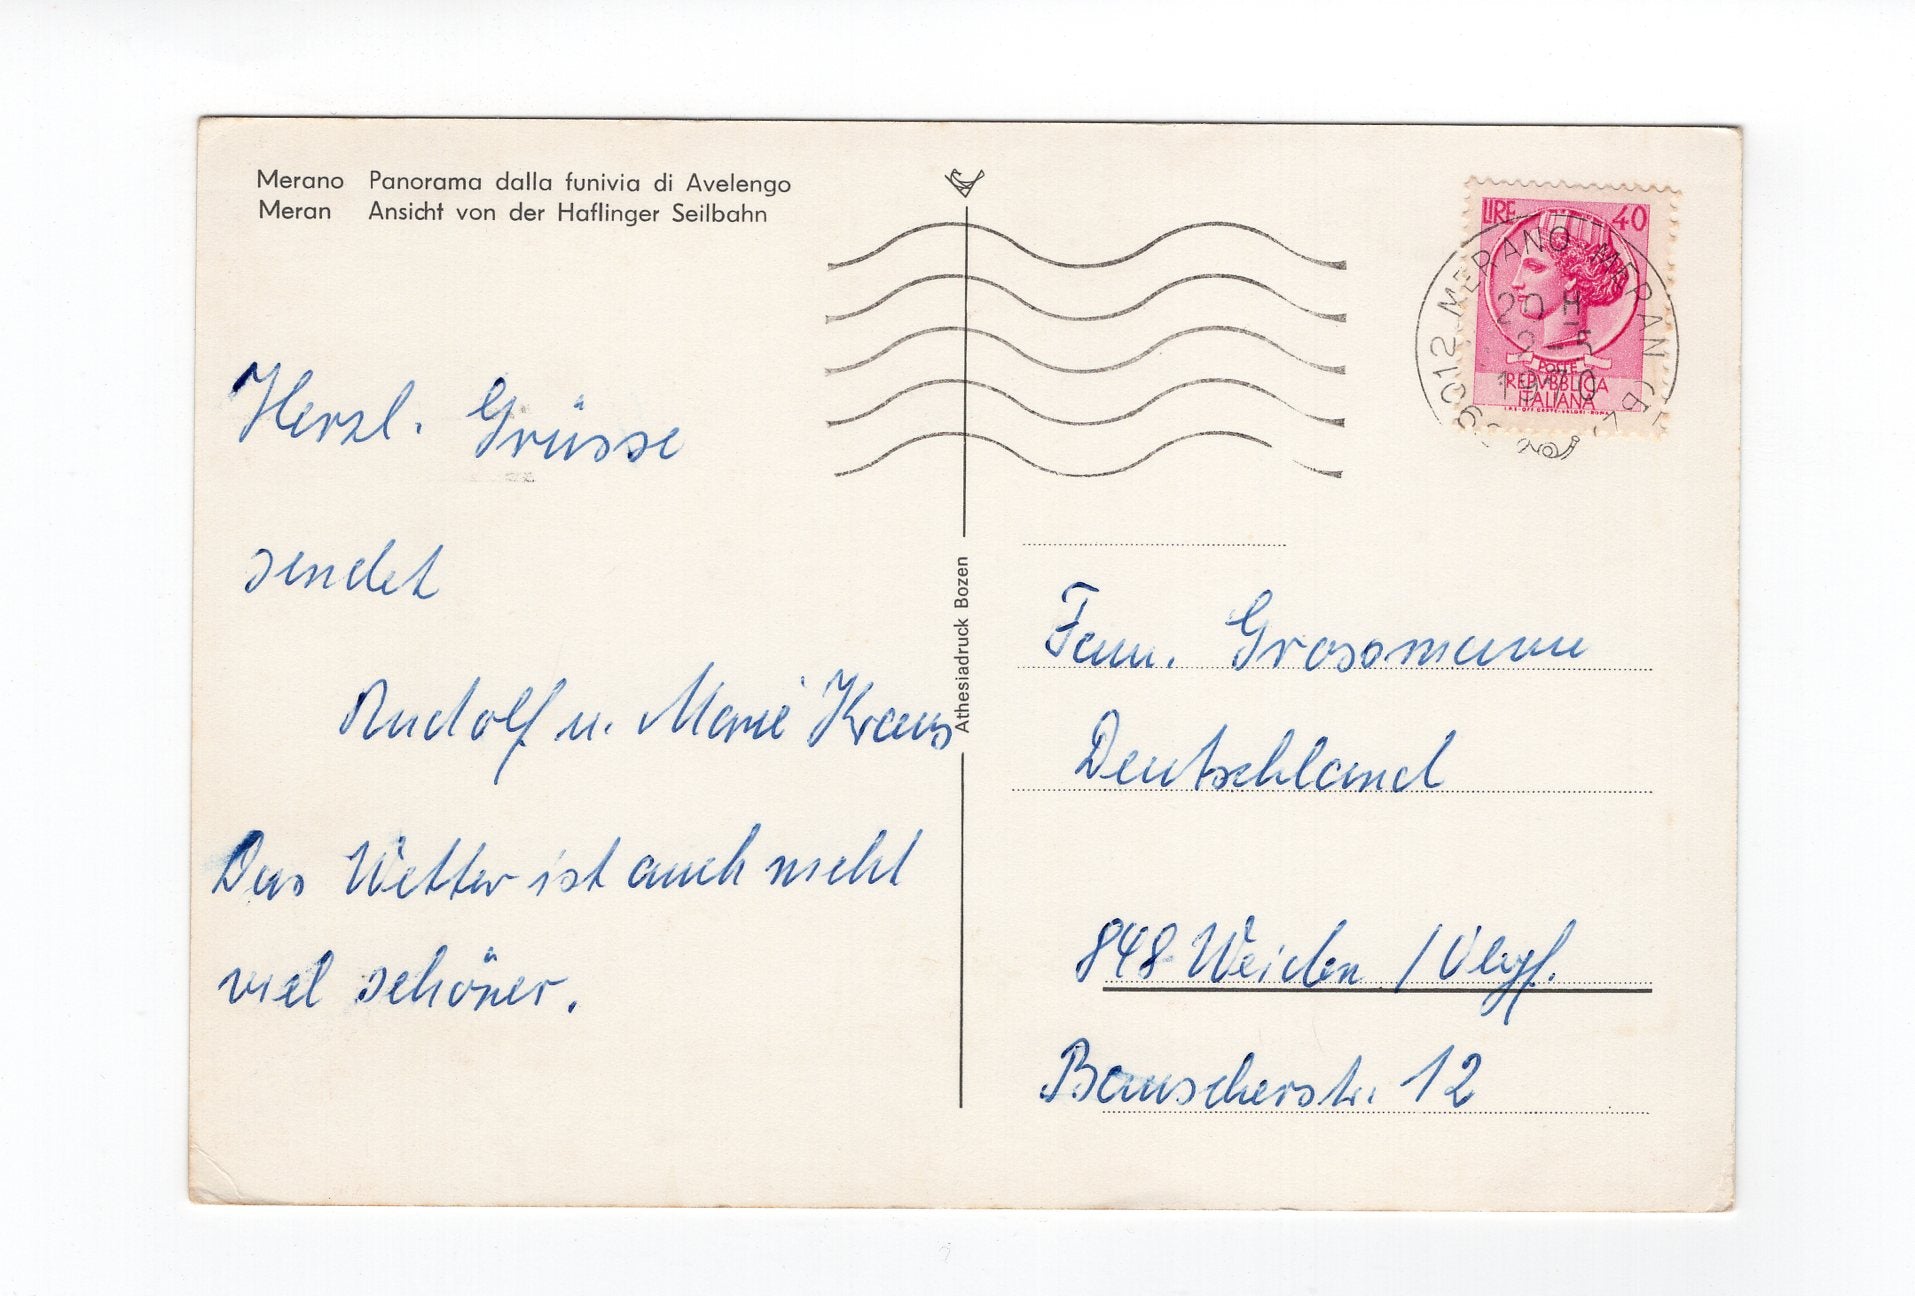 Merano Panorama dalla funivia di Avelengo
Meran Ansicht von der Haflinger Seilbahn
Herzl. Grüsse
sendet
Rudolf u. Marie Kraus
Das Wetter ist auch nicht
viel schöner.
Athesiadruck Bozen
LIRE 40
POSTE
REPVBBLICA
ITALIANA
MERANO MERAN
20 H
2-5
1970
Fam. Grossmann
Deutschland
848 Weiden / Obpf.
Bauscherstr. 12